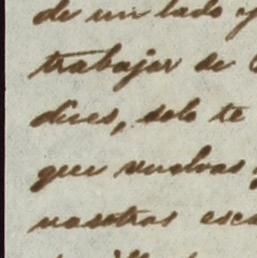 de un lado y
trabajar de
dices, solo te
que vuelvas
nosotros esc